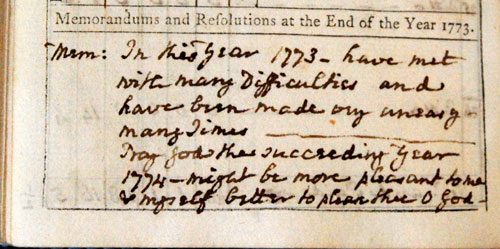 Memorandums and Resolutions at the End of the Year 1773.
Mem: In this Year 1773 - have met
with many Difficulties and
have been made very uneasy
many Times
Pray God the succeeding Year
1774 - might be more pleasant to me
& myself better to please thee O God -